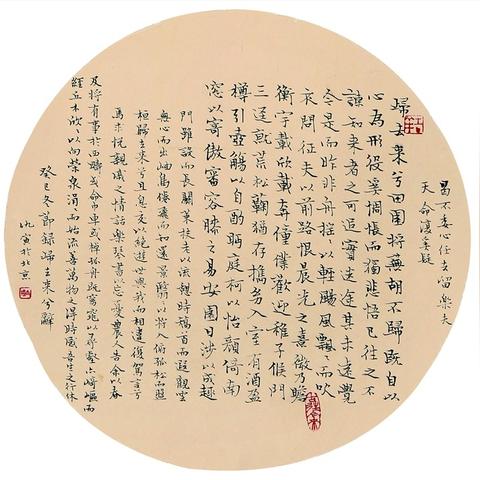 曷不委心任去留樂夫
天命復奚疑
歸去來兮田園將蕪胡不歸既自以
心為形役奚惆悵而獨悲悟已往之不
諫知來者之可追實迷途其未遠覺
今是而昨非舟搖々以輕颺風飄々而吹
衣問征夫以前路恨晨光之熹微乃瞻
衡宇載欣載奔僮僕歡迎稚子候門
三逕就荒松鞠猶存攜幼入室有酒盈
樽引壺觴以自酌眄庭柯以怡顏倚南
窓以寄傲審容膝之易安園日涉以成趣
門雖設而長關策扶老以流憩時矯首而遐觀雲
無心而出岫鳥倦飛而知還景翳々以將入撫孤松而盤
桓歸去來兮且息交以絕遊世與我而相違復駕言兮
焉求悅親戚之情話樂琴書以忘憂農人告余以春
及將有事於西疇或命巾車或棹孤舟既窈窕以尋壑亦崎嶇而
經丘木欣々以向榮泉涓々而始流善萬物之得時感吾生之行休
癸巳冬節錄歸去來兮辭
仇寅於北京